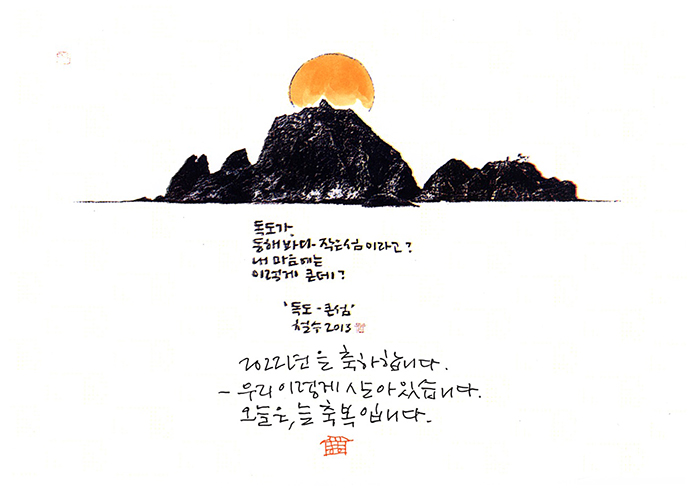 독도가,
동해 바다 - 작은 섬이라고?
내 마음에는
이렇게 큰데?
'독도 - 큰섬'
철수 2013
2022년을 축하합니다.
- 우리 이렇게 살아있습니다.
오늘은, 늘 축복입니다.